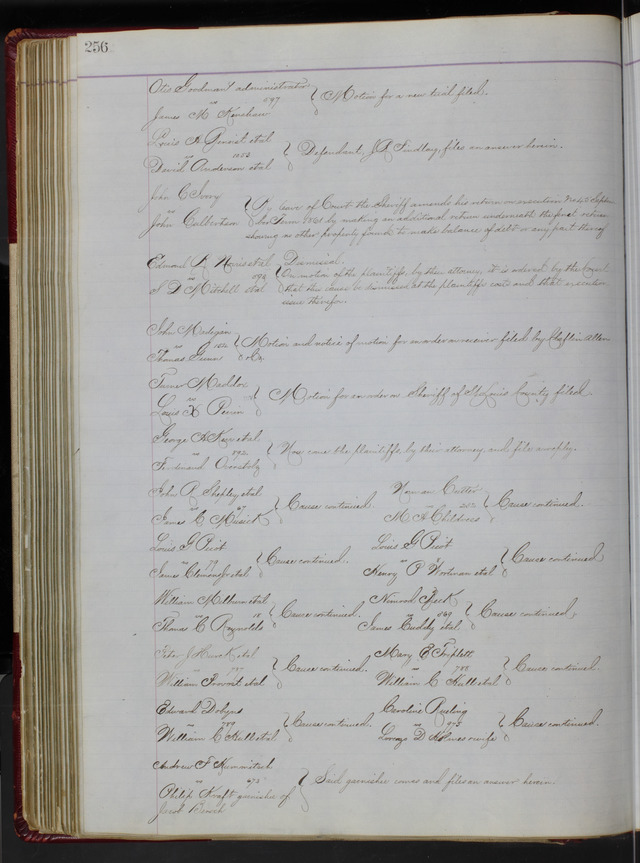 256
Otis Goodman's administrator
vs 597
James M Kershaw
Motion for a new trial filed.
Louis A Benoist et al
vs 1053
David Anderson et al
Defendant, J R Findley, files an answer herein.
John C Ivory
vs
John Culbertson
By leave of Court the Sheriff amends his return on execution
Term 1861 by making an additional return underneath the first return
showing no other property found to make balance of debt or any part thereof
Edmund A et al
vs 594
S D Mitchell et al
Dismissal.
On motion of the plaintiffs, by their attorney, it is ordered by the Court
that this cause be dismissed at the plaintiffs costs and that execution
issue therefor.
John Madigan
vs
Thomas
Motion and notice of motion for an order on receiver filed by Claflin Allen
& Co.
Turner Maddox
vs
Louis X Perrin
Motion for an order on Sheriff of St Louis County filed.
George A et al.
vs 892
Ferdinand
Now come the plaintiffs, by their attorney and file a reply.
John R Shepley et al
vs 67
James C Musick
Cause continued.
Norman Cutter
vs
M A Childress
Cause continued.
Louis G Picot
vs 79
James Clemens Jr et al
Cause continued.
Louis G Picot
vs
Henry P Wortman et al
Cause continued
William Milburn et al
vs
Thomas C Reynolds
Cause continued.
Nimrod Speck
vs 569
James Cuddy et al
Cause continued,
John J et al
vs
William et al
Cause continued.
Mary E Triplett
vs 788
William C Hull et al
Cause continued.
Edward Dobyns
vs 789
William C Hull et al
Cause continued.
Caroline
vs 975
Lorenzo D Holmes & wife
Cause continued.
Andrew F et al
vs 675
Philip Kraft garnishee of
Jacob
Said garnishee comes and files an answer herein.